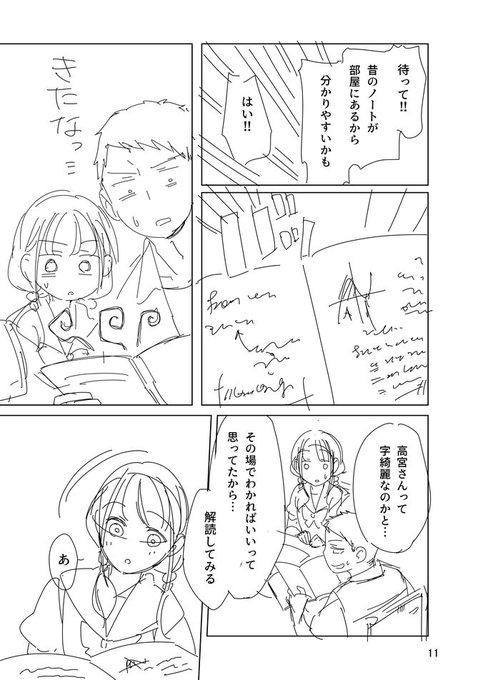 待って!!
昔のノートが
部屋にあるから
分かりやすいかも
はい!!
きたなっ…
高宮さんって
字綺麗なのかと…
その場でわかればいいって
思ってたから…
解読してみる
あ
11